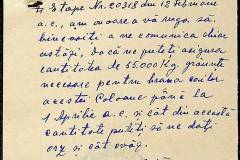 4 Etape Nr. 20318 din 12 Februarie
a.c., am onoare a vă ruga să
binevoiți a ne comunica chiar
astăzi, dacă ne puteți asigura
cantitatea de 55.000 Kg. grăunțe
necesare pentru hrana cailor
acestei Coloane până la
1 Aprilie a.c. și cât din această
cantitate puteți să ne dați
orz și cât ovăz.